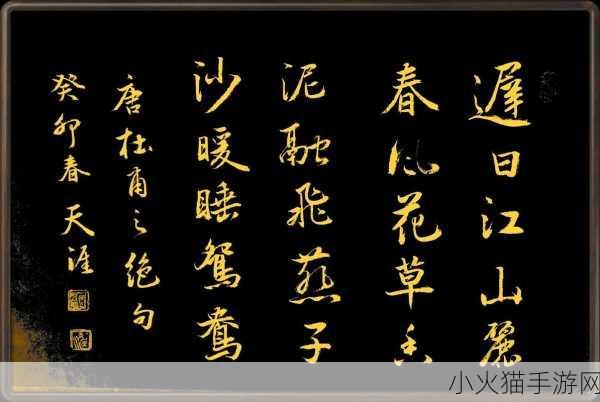 遲日江山麗
春风花草香
泥融飛燕子
沙暖睡鴛鴦
唐杜甫之絶句
癸卯春天涯
小火猫手游网